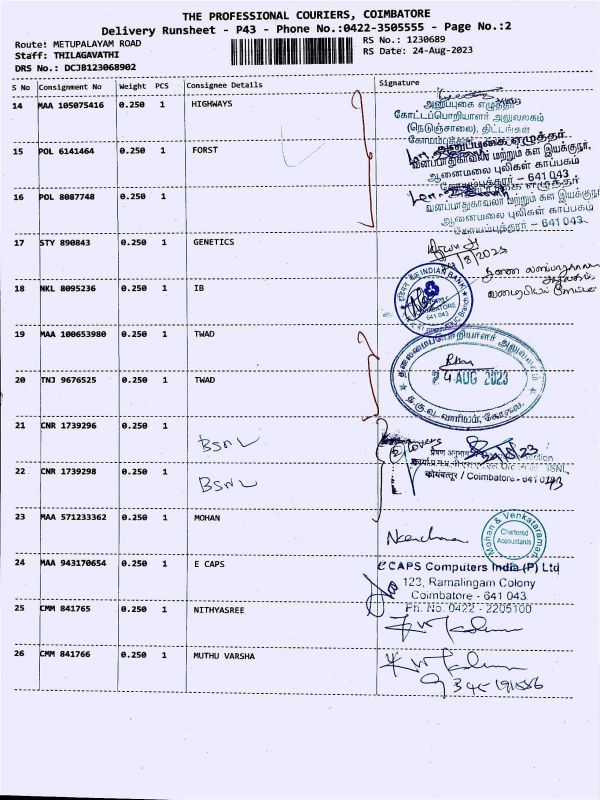 THE PROFESSIONAL COURIERS, COIMBATORE
Delivery Runsheet - P43 - Phone No.:0422-3505555 - Page No.:2
Route: METUPALAYAM ROAD
RS No.: 1230689
Staff: THILAGAVATHI
RS Date: 24-Aug-2023
DRS No.: DCJB123068902
S No Consignment No Weight PCS Consignee Details Signature
14 MAA 105075416 0.250 1 HIGHWAYS
அனுப்புகை எழுத்தர்
கோட்டப்பொறியாளர் அலுவலகம்
(நெடுஞ்சாலை), திட்டங்கள்
15 POL 6141464 0.250 1 FORST
அனுப்புகை எழுத்தர்
வனப்பாதுகாவலர் மற்றும் கள இயக்குநர்,
ஆனைமலை புலிகள் காப்பகம்
கோயம்புத்தூர் - 641 043
16 POL 8087748 0.250 1
எழுத்தர்
வனப்பாதுகாவலர் மற்றும் கள இயக்குநர்,
ஆனைமலை புலிகள் காப்பகம்
கோயம்புத்தூர் - 641 043
17 STY 890843 0.250 1 GENETICS
/8/2023
18 NKL 8095236 0.250 1 IB
INDIAN BANK
641 043
Branch
19 MAA 100653980 0.250 1 TWAD
தலைமைப்பொறியாளர் அலுவலகம்
20 TNJ 9676525 0.250 1 TWAD
24 AUG 2023
த.கு.வ. வாரியம், கோவை.
21 CNR 1739296 0.250 1
BSNL
2 Covers
/8/23
22 CNR 1739298 0.250 1
BSNL
BSNL
कोयंबत्तूर / Coimbatore - 641 043
23 MAA 571233362 0.250 1 MOHAN
Mohan & Venkataraman
Chartered
Accountants
24 MAA 943170654 0.250 1 E CAPS
eCAPS Computers India (P) Ltd
123, Ramalingam Colony
Coimbatore - 641 043
Ph. No. 0422 - 2205100
25 CMM 841765 0.250 1 NITHYASREE
26 CMM 841766 0.250 1 MUTHU VARSHA